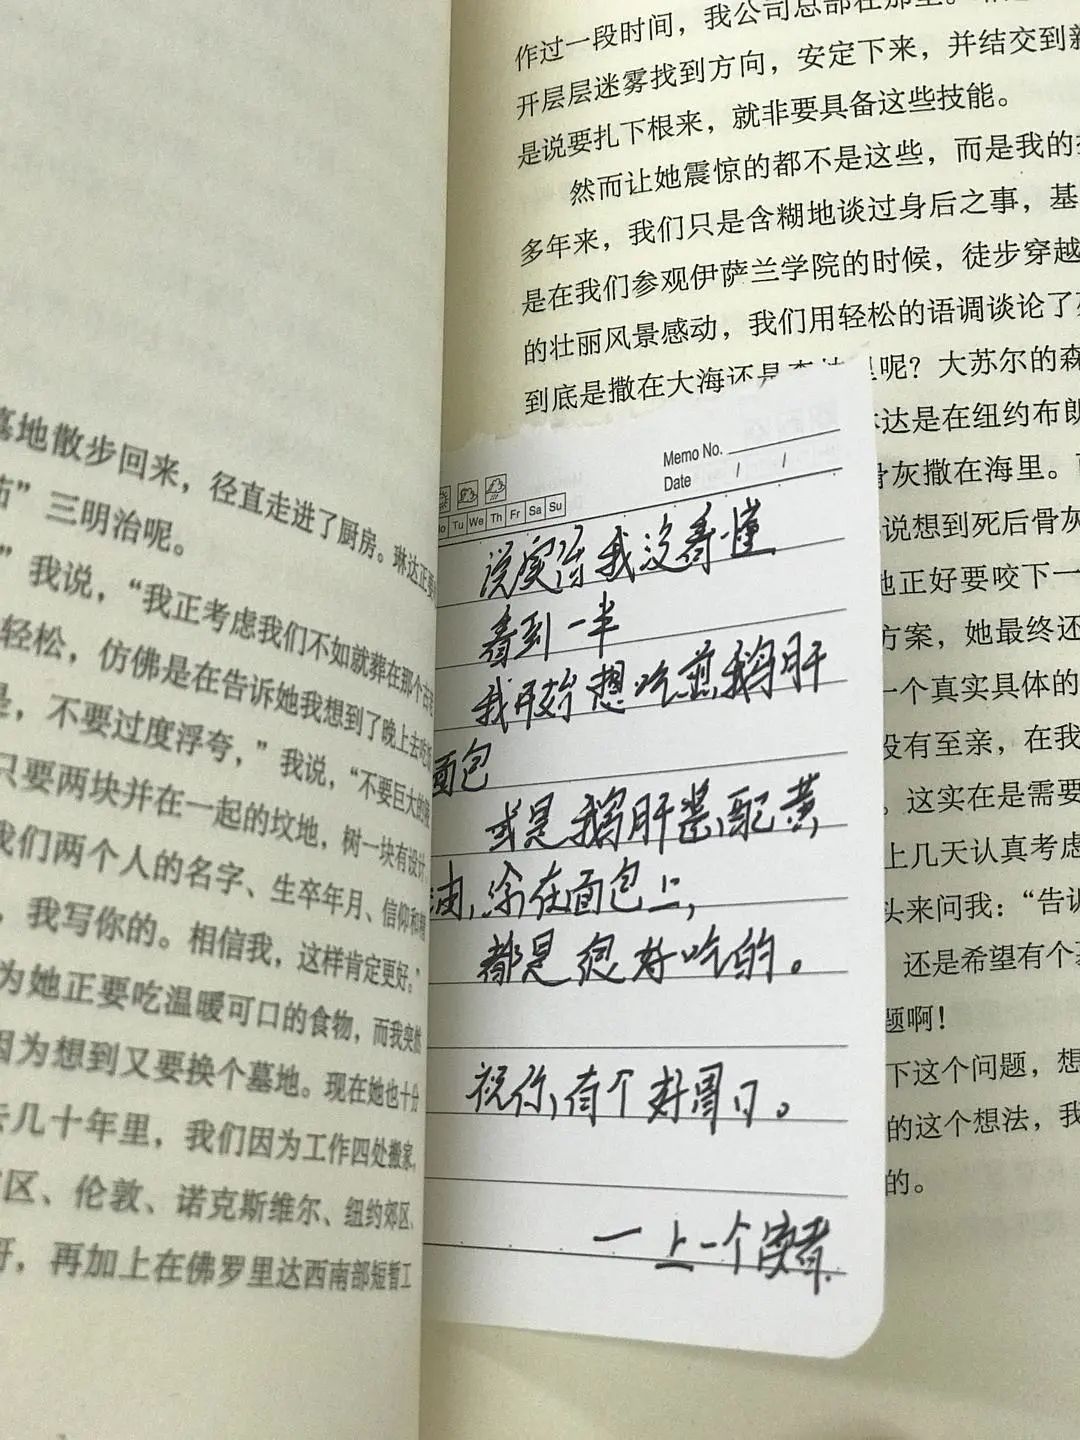 墓地散步回来，径直走进了厨房。琳达正要
”三明治呢。
”我说，“我正考虑我们不如就葬在那个古老
轻松，仿佛是在告诉她我想到了晚上去吃
是，不要过度浮夸，”我说，“不要巨大的
只要两块并在一起的坟地，树一块有设计
我们两个人的名字、生卒年月、信仰和
，我写你的。相信我，这样肯定更好。”
为她正要吃温暖可口的食物，而我突然
因为想到又要换个墓地。现在她也十分
去几十年里，我们因为工作四处搬家，
区、伦敦、诺克斯维尔、纽约郊区、
哥，再加上在佛罗里达西南部短暂工
作过一段时间，我公司总部在那里。
开层层迷雾找到方向，安定下来，并结交到新
是说要扎下根来，就非要具备这些技能。
然而让她震惊的都不是这些，而是我的
多年来，我们只是含糊地谈过身后之事，基
是在我们参观伊萨兰学院的时候，徒步穿越
的壮丽风景感动，我们用轻松的语调谈论了
到底是撒在大海还是森林里呢？大苏尔的森
达是在纽约布朗
骨灰撒在海里。
说想到死后骨灰
她正好要咬下一
方案，她最终还
一个真实具体的
没有至亲，在我
。这实在是需要
上几天认真考虑
头来问我：“告诉
还是希望有个墓
题啊！
下这个问题，想
的这个想法，我
的。
Memo No.
Date / /
Mo Tu We Th Fr Sa Su
说实话我没看懂
看到一半
我开始想吃煎鹅肝
面包
或是鹅肝酱配黄
油，涂在面包上，
都是很好吃的。
祝你，有个好胃口。
一上一个读者